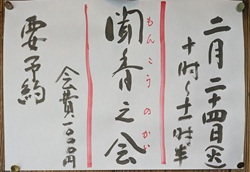 二月二十四日(火)
十時~十一時半
聞香之会
もんこうのかい
会費一〇〇〇円
要予約